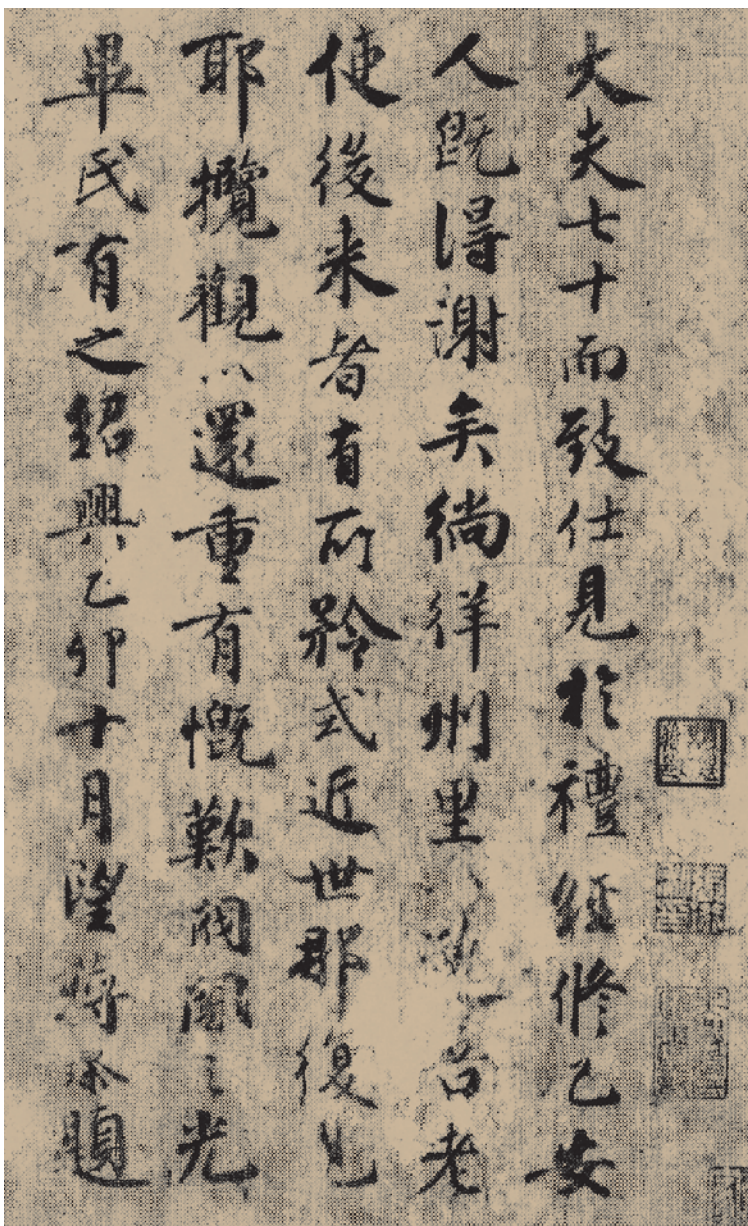 大夫七十而致仕見於禮經修己安
人既得謝矣徜徉州里 台老
使後来者有所矜式近世那復見
耶攬觀以還重有慨歎閥閱之光
畢氏有之紹興己卯十月望蔣璨題